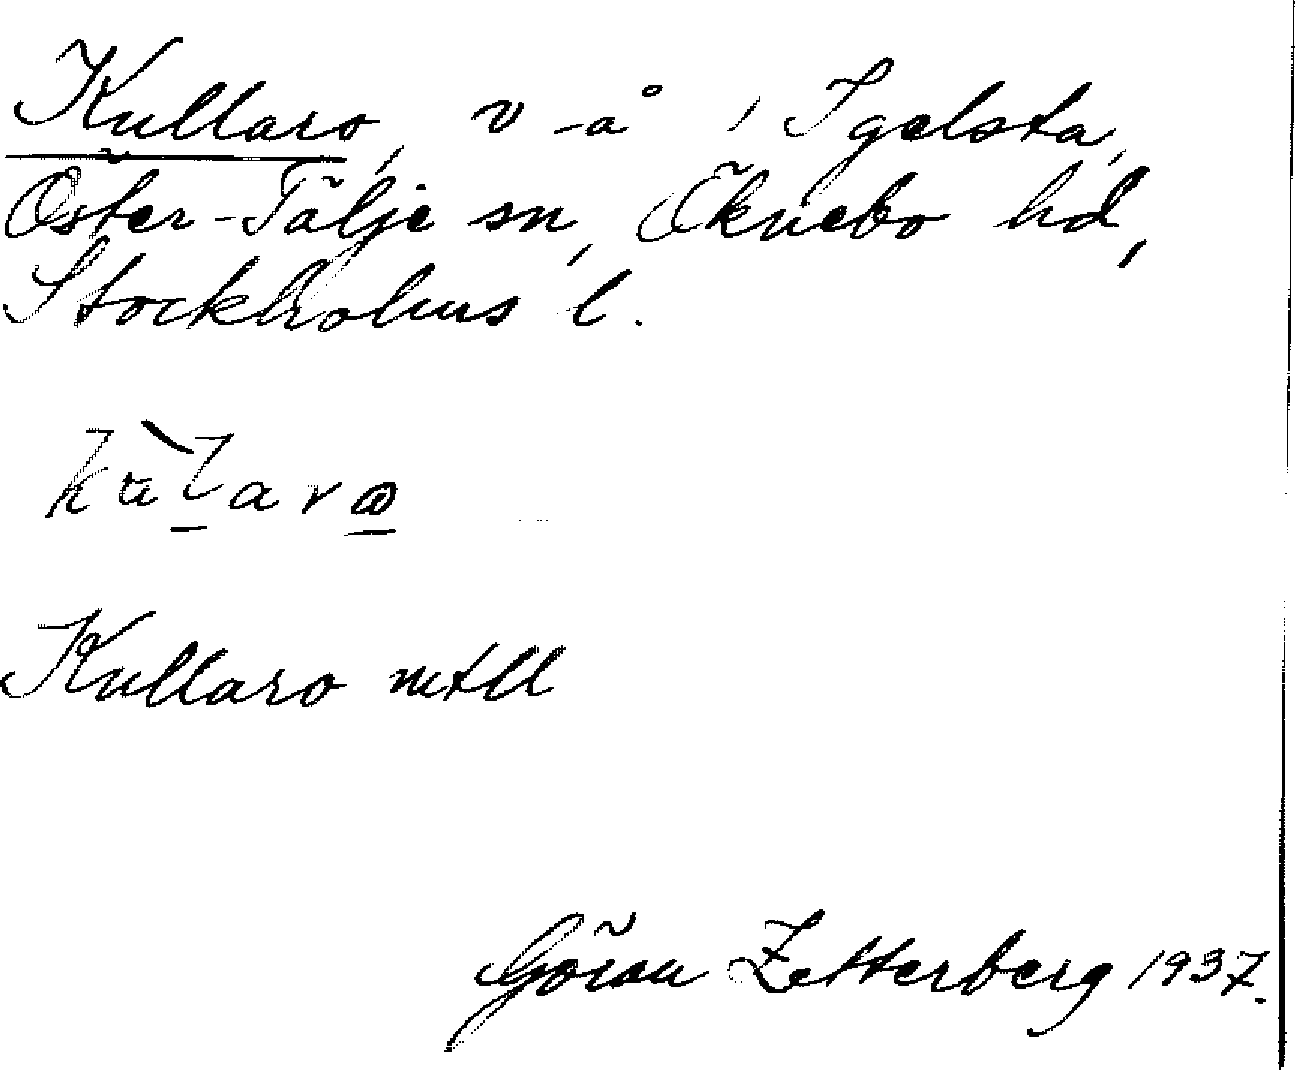 Kullaro, v-å i Igelsta,
Öster-Tälje sn, Öknebo hd,
Stockholms l.
Kullaro mtll
Göran Zetterberg 1937.